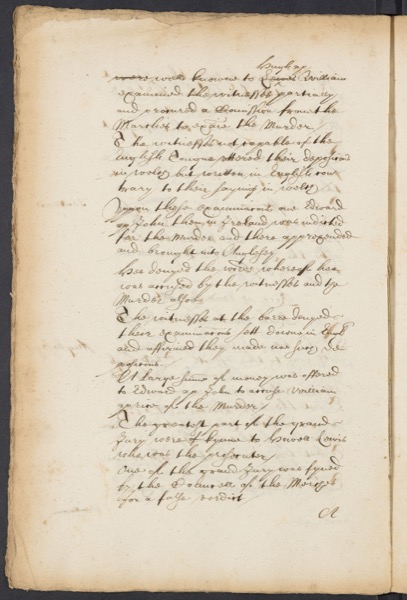 Hugh ap
were was knowne to Lewis William
examined the witnesses partially
and procured a Comission from the
Marches to exa͠ie the Murder
The witnesses not capable of the
English Tongue uttered their deposicons
in welsh but written in English con
trary to their sayings in welsh
Upon these examinacons one Edward
ap John then in Ireland was indicted
for the Murder and there apprehended
and brought into Anglesey
hee denyed the words whereof hee
was accused by the witnesses and the
Murder also
The witnesses at the barre denyed
their examinacons sett downe in
and affirmed they made noe such de
posicons
A large some of money was offered
to Edward ap John to accuse william
of the Murder
The greatest part of the grand
Jury were of kynne to Lewis
who was the prosecutor
One of the grand Jury was fyned
by the Councell of the Marches
for a false verdict